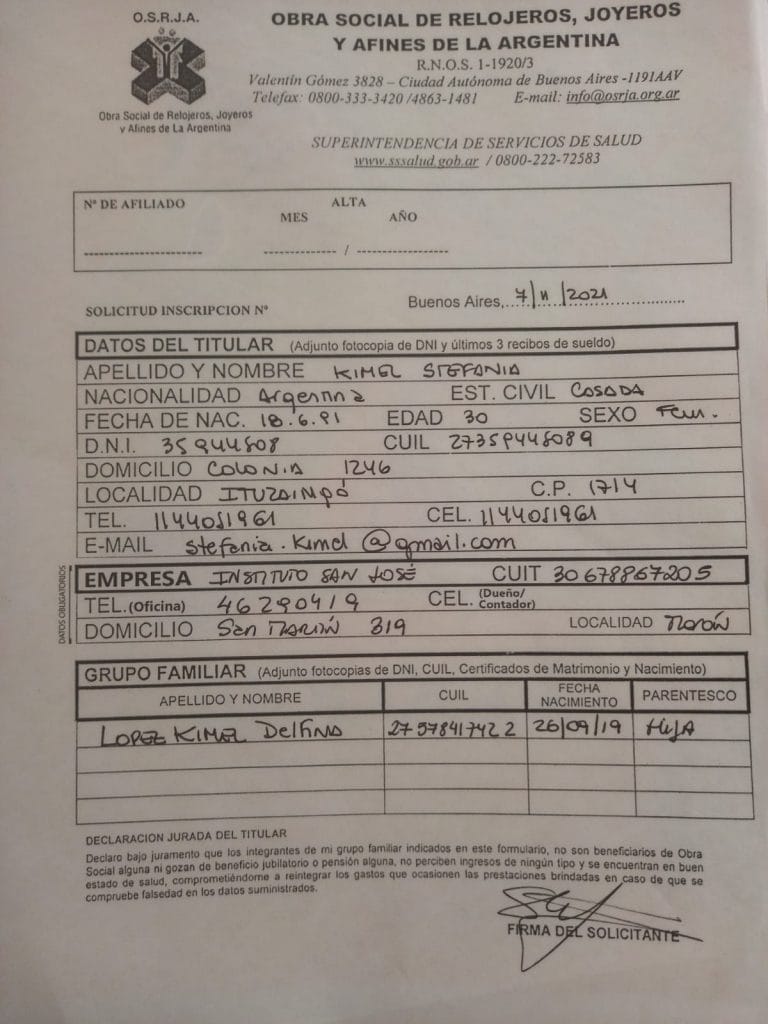 O.S.R.J.A.
Obra Social de Relojeros, Joyeros
y Afines de La Argentina
OBRA SOCIAL DE RELOJEROS, JOYEROS
Y AFINES DE LA ARGENTINA
R.N.O.S. 1-1920/3
Valentín Gómez 3828 – Ciudad Autónoma de Buenos Aires -1191AAV
Telefax: 0800-333-3420 /4863-1481 E-mail: info@osrja.org.ar
SUPERINTENDENCIA DE SERVICIOS DE SALUD
www.sssalud.gob.ar / 0800-222-72583
Nº DE AFILIADO ALTA
MES AÑO
-------------------- / --------------------
SOLICITUD INSCRIPCION Nº Buenos Aires, 7/11/2021
DATOS DEL TITULAR (Adjunto fotocopia de DNI y últimos 3 recibos de sueldo)
APELLIDO Y NOMBRE KIMEL STEFANIA
NACIONALIDAD Argentina EST. CIVIL Casada
FECHA DE NAC. 18.6.91 EDAD 30 SEXO Fem.
D.N.I. 35944808 CUIL 27359448089
DOMICILIO COLONIA 1246
LOCALIDAD ITUZAINGÓ C.P. 1714
TEL. 1144051961 CEL. 1144051961
E-MAIL stefania.kimel@gmail.com
DATOS OBLIGATORIOS
EMPRESA INSTITUTO SAN JOSÉ CUIT 30678867205
TEL.(Oficina) 46290419 CEL. (Dueño/Contador)
DOMICILIO San Martín 319 LOCALIDAD Morón
GRUPO FAMILIAR (Adjunto fotocopias de DNI, CUIL, Certificados de Matrimonio y Nacimiento)
APELLIDO Y NOMBRE CUIL FECHA NACIMIENTO PARENTESCO
LOPEZ KIMEL Delfina 27578417422 26/09/19 HIJA
DECLARACION JURADA DEL TITULAR
Declaro bajo juramento que los integrantes de mi grupo familiar indicados en este formulario, no son beneficiarios de Obra
Social alguna ni gozan de beneficio jubilatorio o pensión alguna, no perciben ingresos de ningún tipo y se encuentran en buen
estado de salud, comprometiéndome a reintegrar los gastos que ocasionen las prestaciones brindadas en caso de que se
compruebe falsedad en los datos suministrados.
FIRMA DEL SOLICITANTE